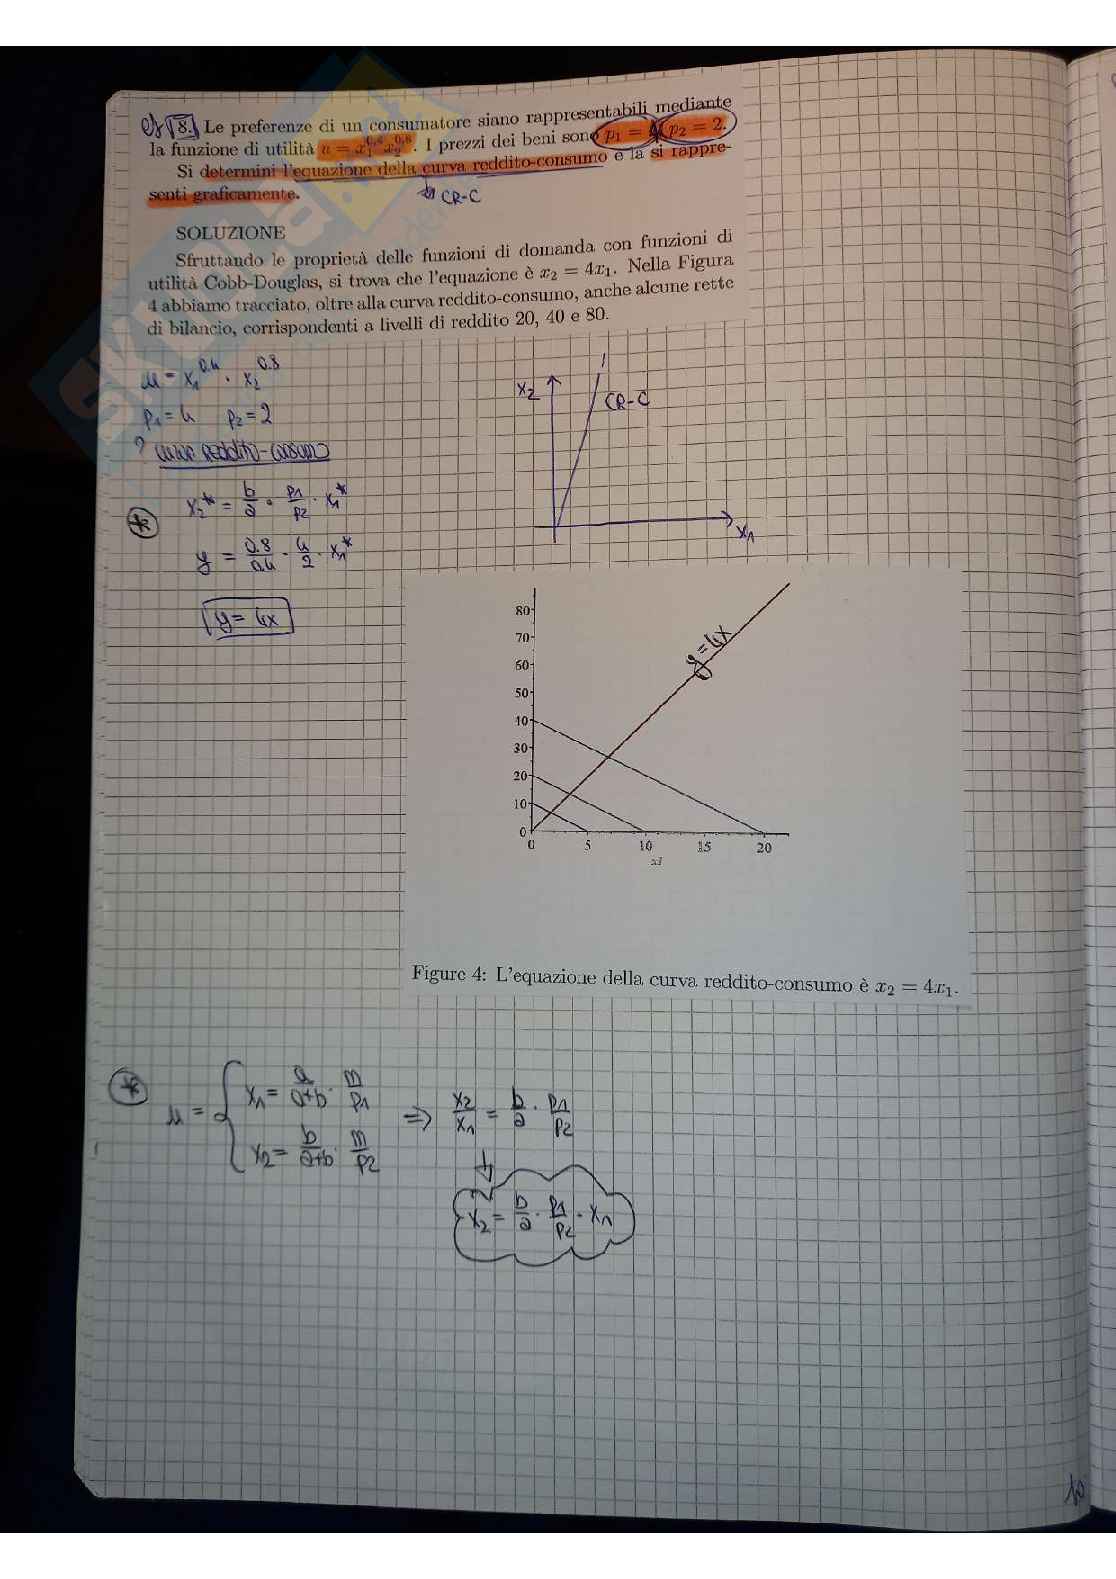 es 8. Le preferenze di un consumatore siano rappresentabili mediante
la funzione di utilità u = x₁^0.4 x₂^0.8. I prezzi dei beni sono p₁ = 4, p₂ = 2.
Si determini l'equazione della curva reddito-consumo e la si rappre-
senti graficamente.
CR-C
SOLUZIONE
Sfruttando le proprietà delle funzioni di domanda con funzioni di
utilità Cobb-Douglas, si trova che l'equazione è x₂ = 4x₁. Nella Figura
4 abbiamo tracciato, oltre alla curva reddito-consumo, anche alcune rette
di bilancio, corrispondenti a livelli di reddito 20, 40 e 80.
u = x₁^0.4 · x₂^0.8
p₁ = 4 p₂ = 2
? curva reddito-consumo
* x₂* = b/a · p₁/p₂ · x₁*
y = 0.8/0.4 · 4/2 · x₁*
y = 4x
x₂
CR-C
x₁
80
70
60
50
40
30
20
10
0
y = 4x
0 5 10 15 20
x1
Figure 4: L'equazione della curva reddito-consumo è x₂ = 4x₁.
* u = { x₁ = a/a+b · m/p₁
x₂ = b/a+b · m/p₂
⇒ x₂/x₁ = b/a · p₁/p₂
x₂ = b/a · p₁/p₂ · x₁